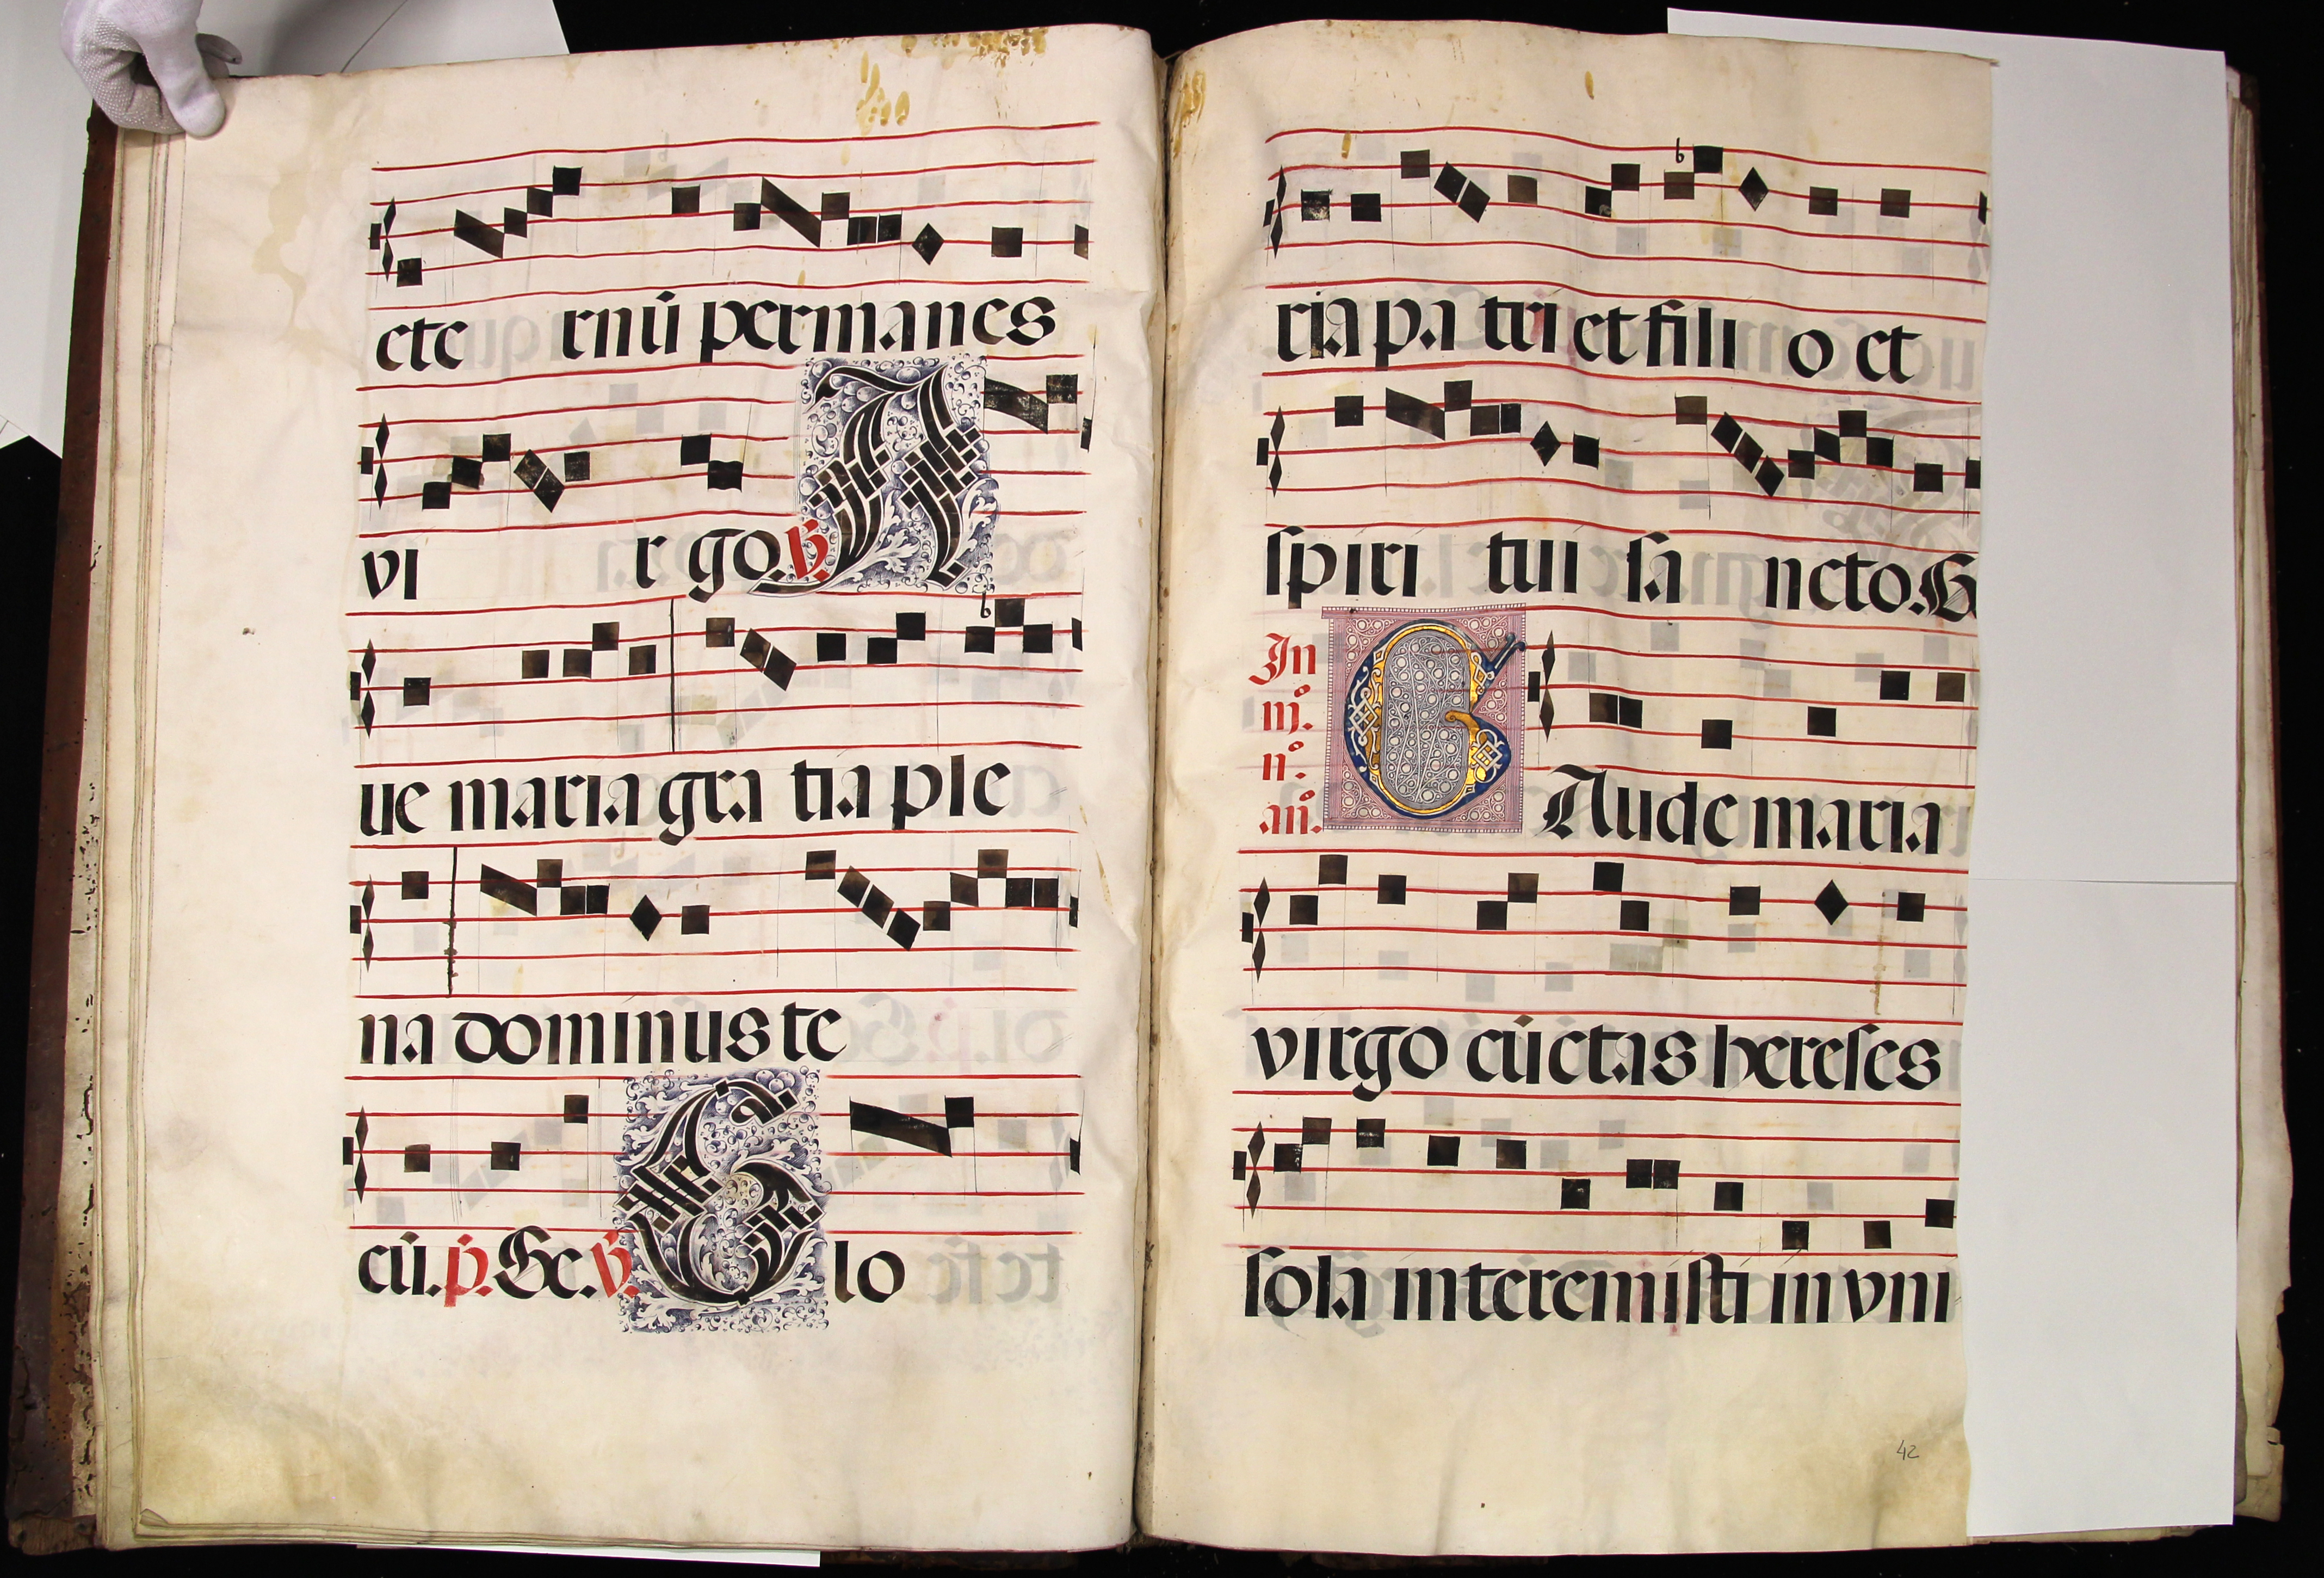 ete rnũ permanes
vi r go. ℣. A
ue maria gra tia ple
na dominus te
cũ. p̃. Sc. ℣. G lo
ria pa tri et fili o et
spiri tui sa ncto. S
In
iijº.
nº.
añ. G Aude maria
virgo cũctas hereses
sola interemisti in vni
42